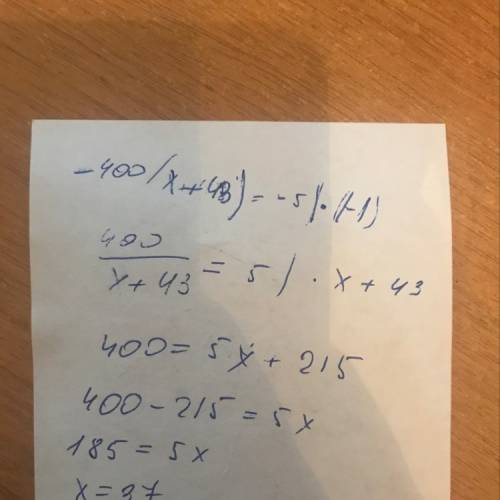 -400/(x+43) = -5 | · (-1)
400
x+43 = 5 / · x + 43
400 = 5x + 215
400 - 215 = 5x
185 = 5x
x = 37